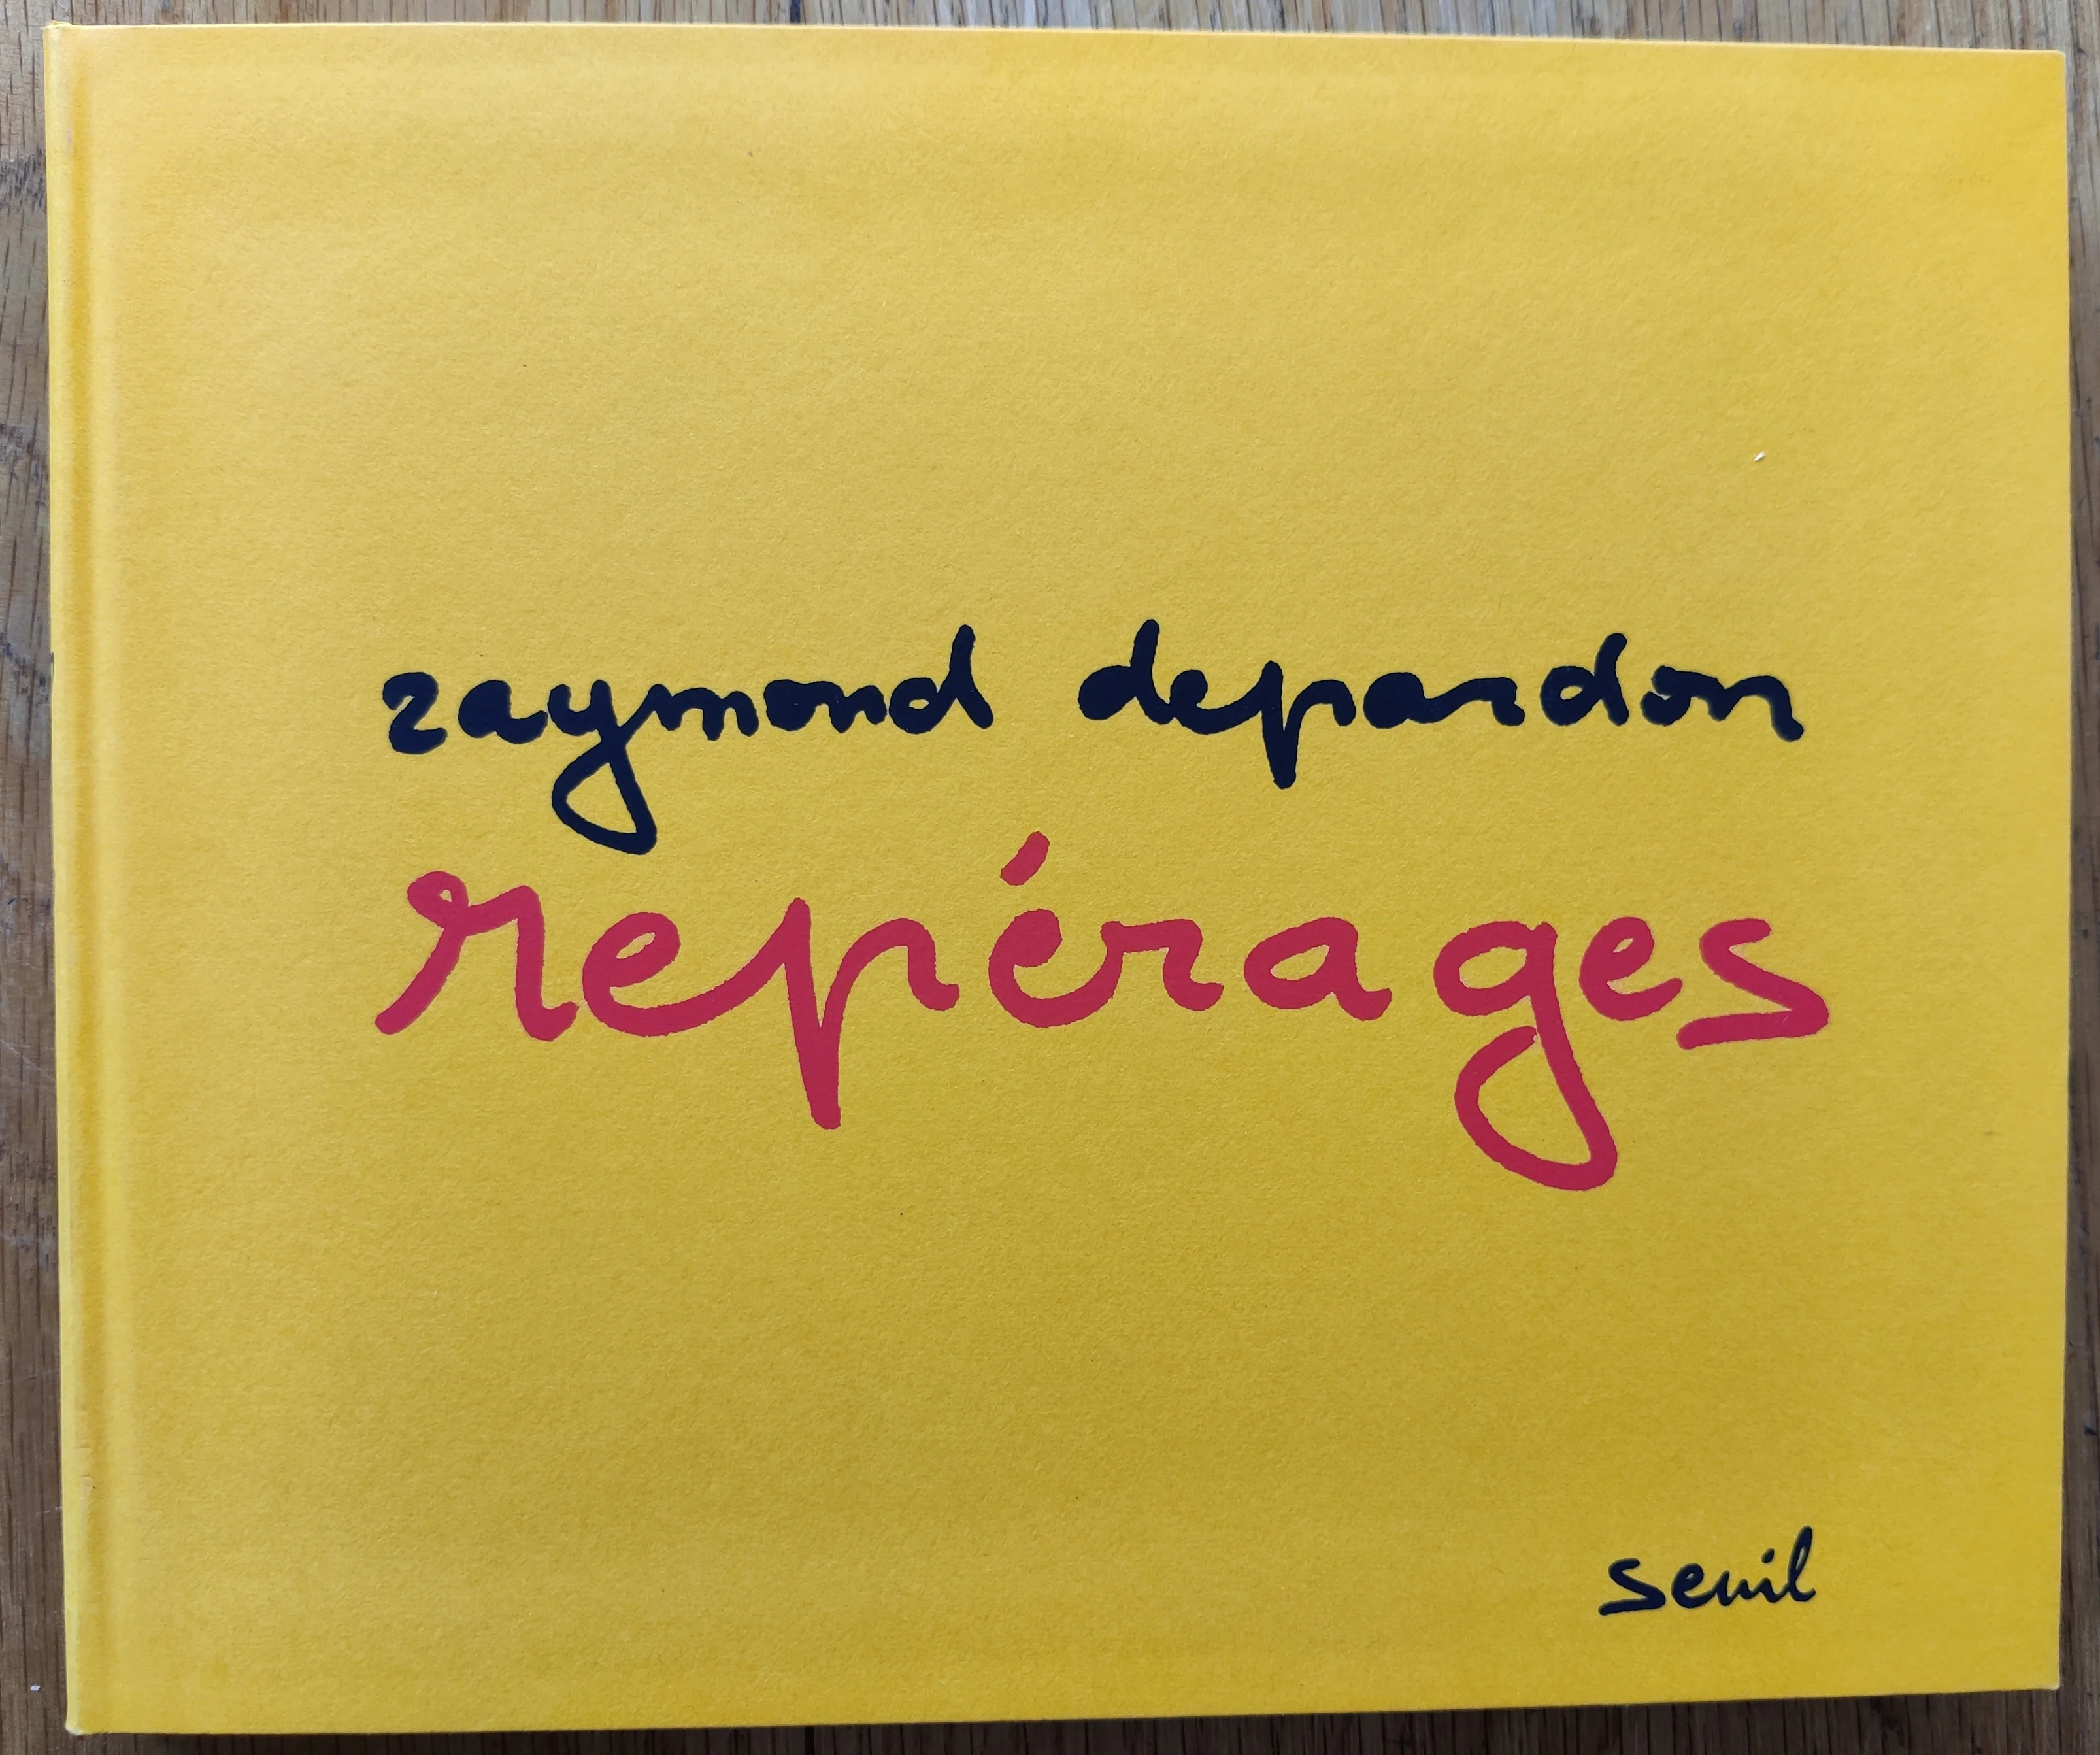 raymond depardon
repérages
seuil